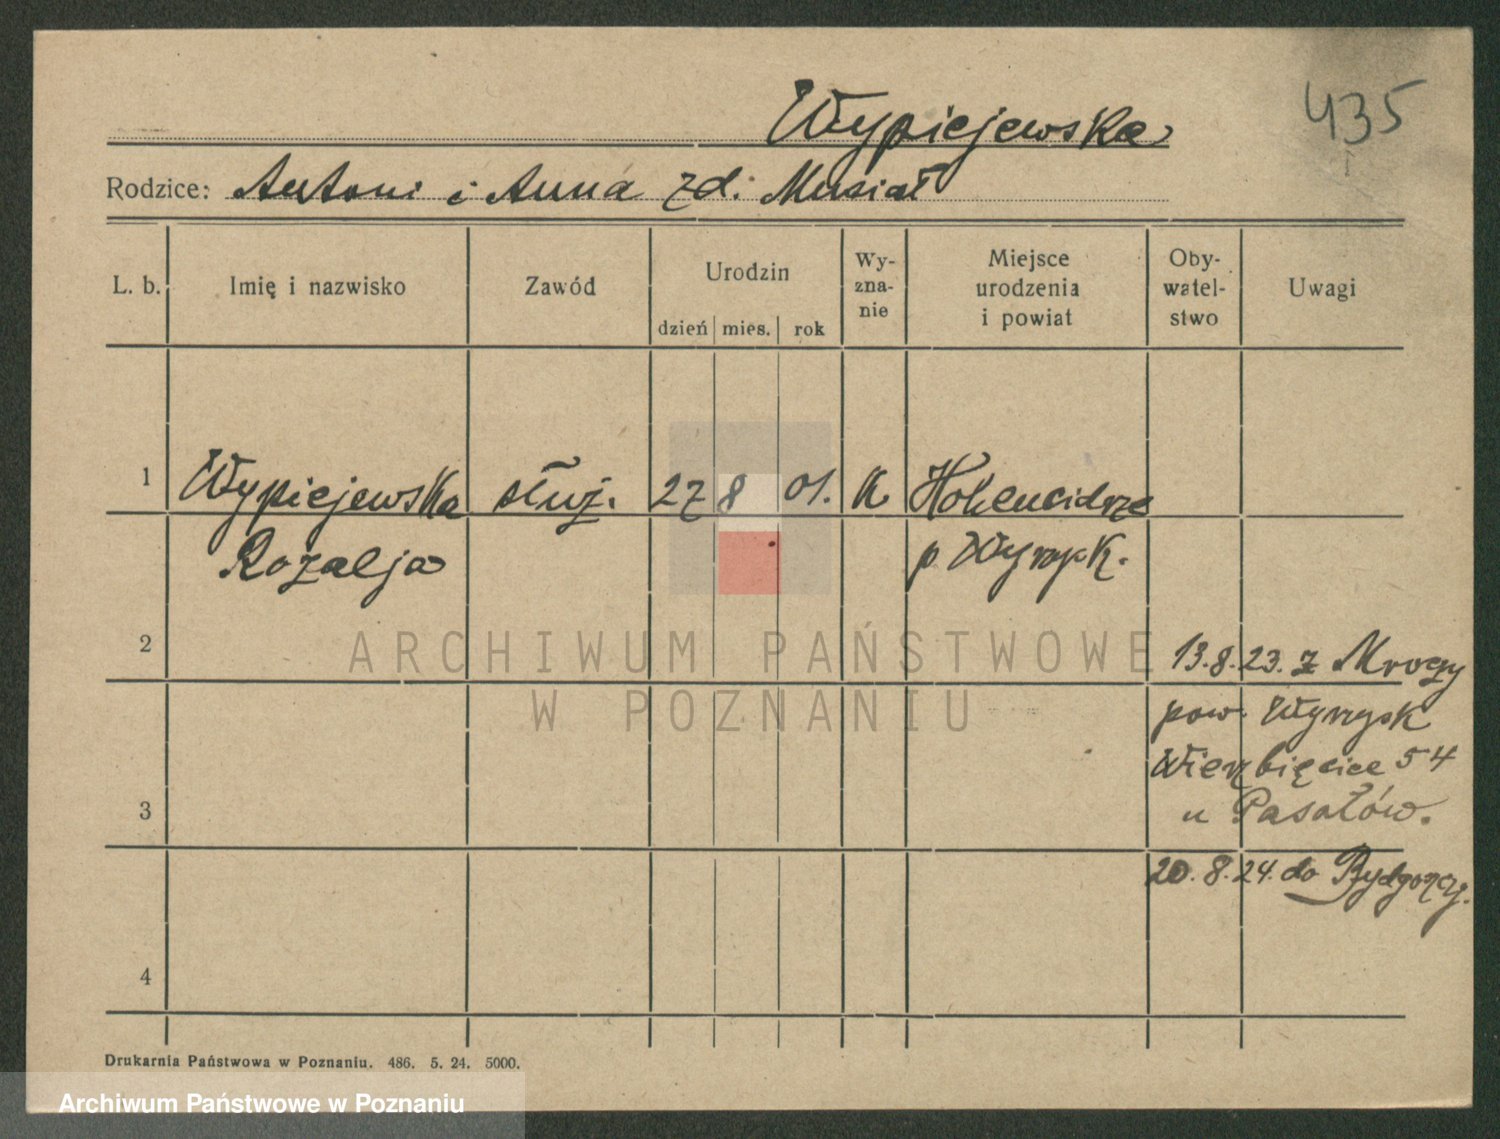 Wypiejewska
435
Rodzice: Antoni i Anna zd. Musiał
L. b. Imię i nazwisko Zawód Urodzin dzień mies. rok Wy-zna-nie Miejsce urodzenia i powiat Oby-watel-stwo Uwagi
1 Wypiejewska służ. 27 8 01. K
Rozalja p. Wyrzysk.
2
13.8.23. z Mroczy
pow. Wyrzysk
Wierzbięcice 54
u
3
20.8.24. do Bydgoszcz.
4
Drukarnia Państwowa w Poznaniu. 486. 5. 24. 5000.
ARCHIWUM PAŃSTWOWE
W POZNANIU
Archiwum Państwowe w Poznaniu